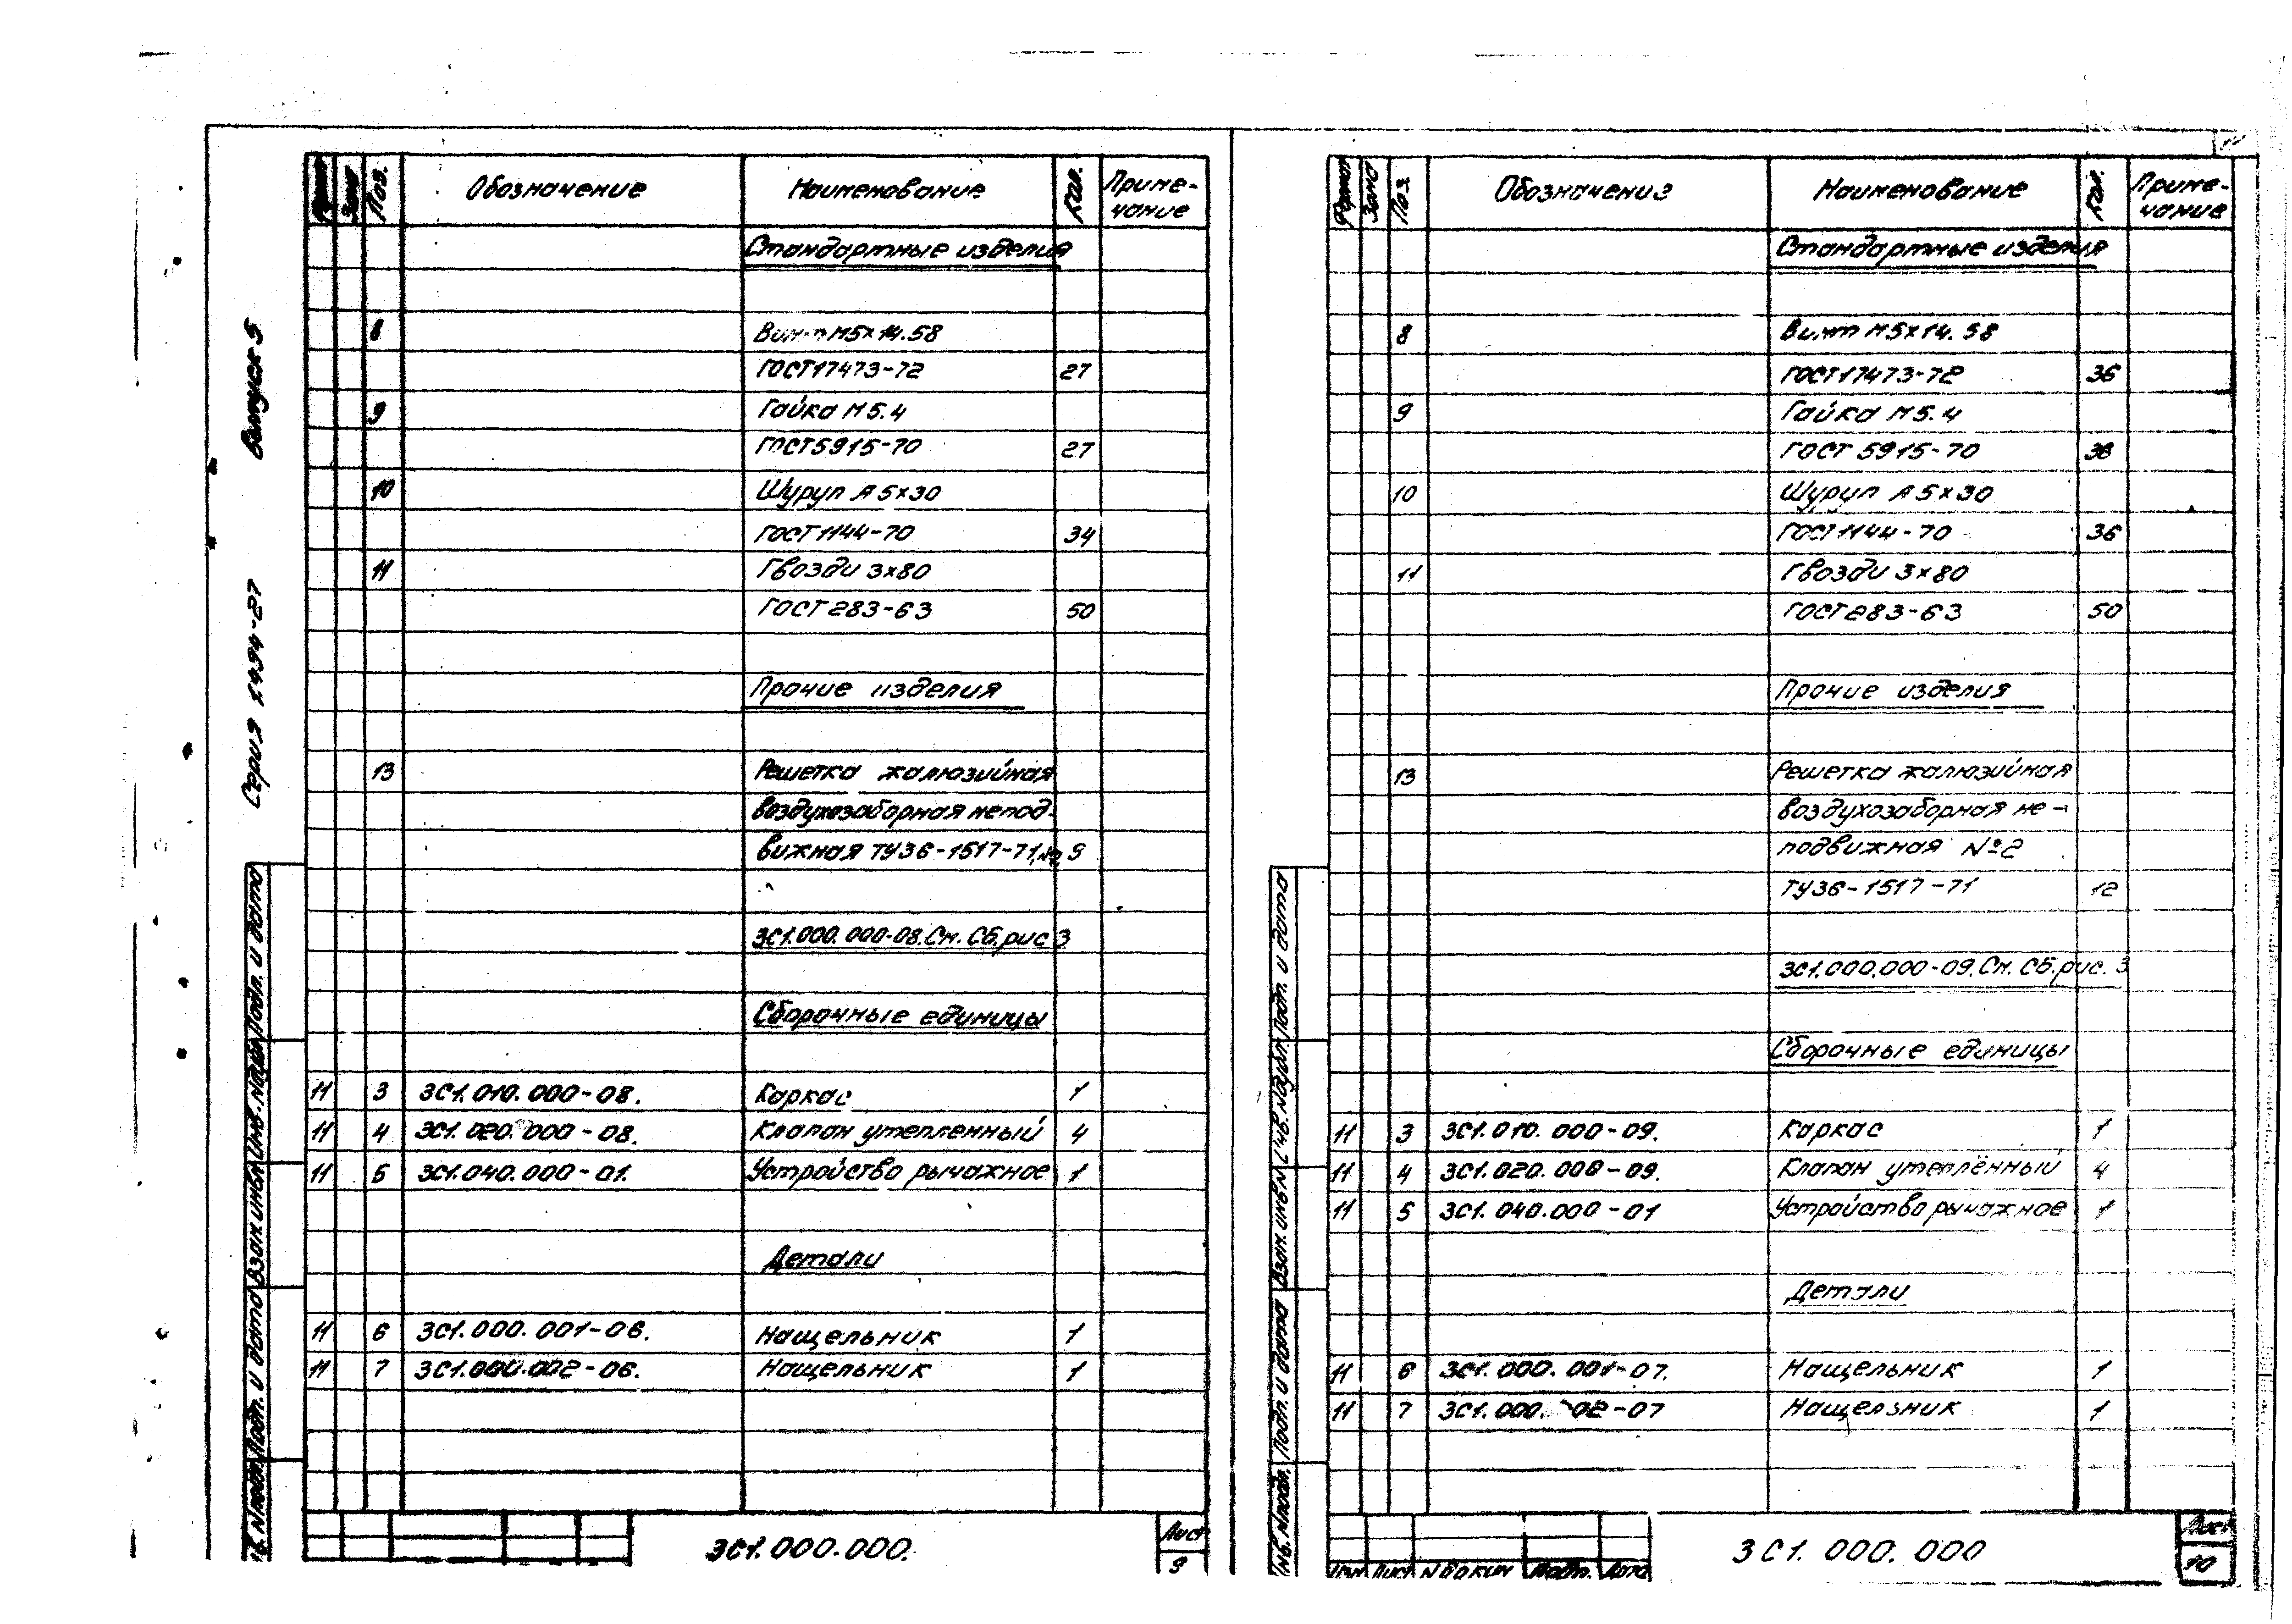 Выпуск 5
Серия 1.494-27
Формат Зона Поз. Обозначение Наименование Кол. Приме-
чание
Стандартные изделия
8 Винт М5×14.58
ГОСТ 17473-72 27
9 Гайка М5.4
ГОСТ 5915-70 27
10 Шуруп А5×30
ГОСТ 1144-70 34
11 Гвозди 3×80
ГОСТ 283-63 50
Прочие изделия
13 Решетка жалюзийная
воздухозаборная непод-
вижная ТУ36-1517-71, №2 9
3С1.000.000-08. См. СБ. рис 3
Сборочные единицы
11 3 3С1.010.000-08. Каркас 1
11 4 3С1.020.000-08. Клапан утепленный 4
11 5 3С1.040.000-01. Устройство рычажное 1
Детали
11 6 3С1.000.001-06. Нащельник 1
11 7 3С1.000.002-06. Нащельник 1
Подп. и дата
Взам. инв. №
Подп. и дата
3С1.000.000.
Лист
9
Формат Зона Поз. Обозначение Наименование Кол. Приме-
чание
Стандартные изделия
8 Винт М5×14.58
ГОСТ 17473-72 36
9 Гайка М5.4
ГОСТ 5915-70 36
10 Шуруп А5×30
ГОСТ 1144-70 36
11 Гвозди 3×80
ГОСТ 283-63 50
Прочие изделия
13 Решетка жалюзийная
воздухозаборная не-
подвижная №2
ТУ36-1517-71 12
3С1.000.000-09. См. СБ. рис. 3
Сборочные единицы
11 3 3С1.010.000-09. Каркас 1
11 4 3С1.020.000-09. Клапан утеплённый 4
11 5 3С1.040.000-01 Устройство рычажное 1
Детали
11 6 3С1.000.001-07. Нащельник 1
11 7 3С1.000.002-07 Нащельник 1
Подп. и дата
Взам. инв. №
Подп. и дата
Изм Лист № докум Подп. Дата
3С1.000.000
Лист
10